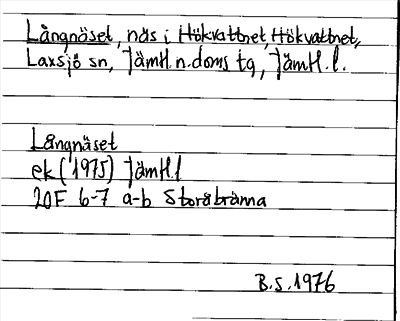 Långnäset, näs i Hökvattnet, Hökvattnet,
Laxsjö sn, Jämtl. n. doms tg, Jämtl. l.
Långnäset
ek (1975) Jämtl. l
20F 6-7 a-b Storåbränna
B.S. 1976